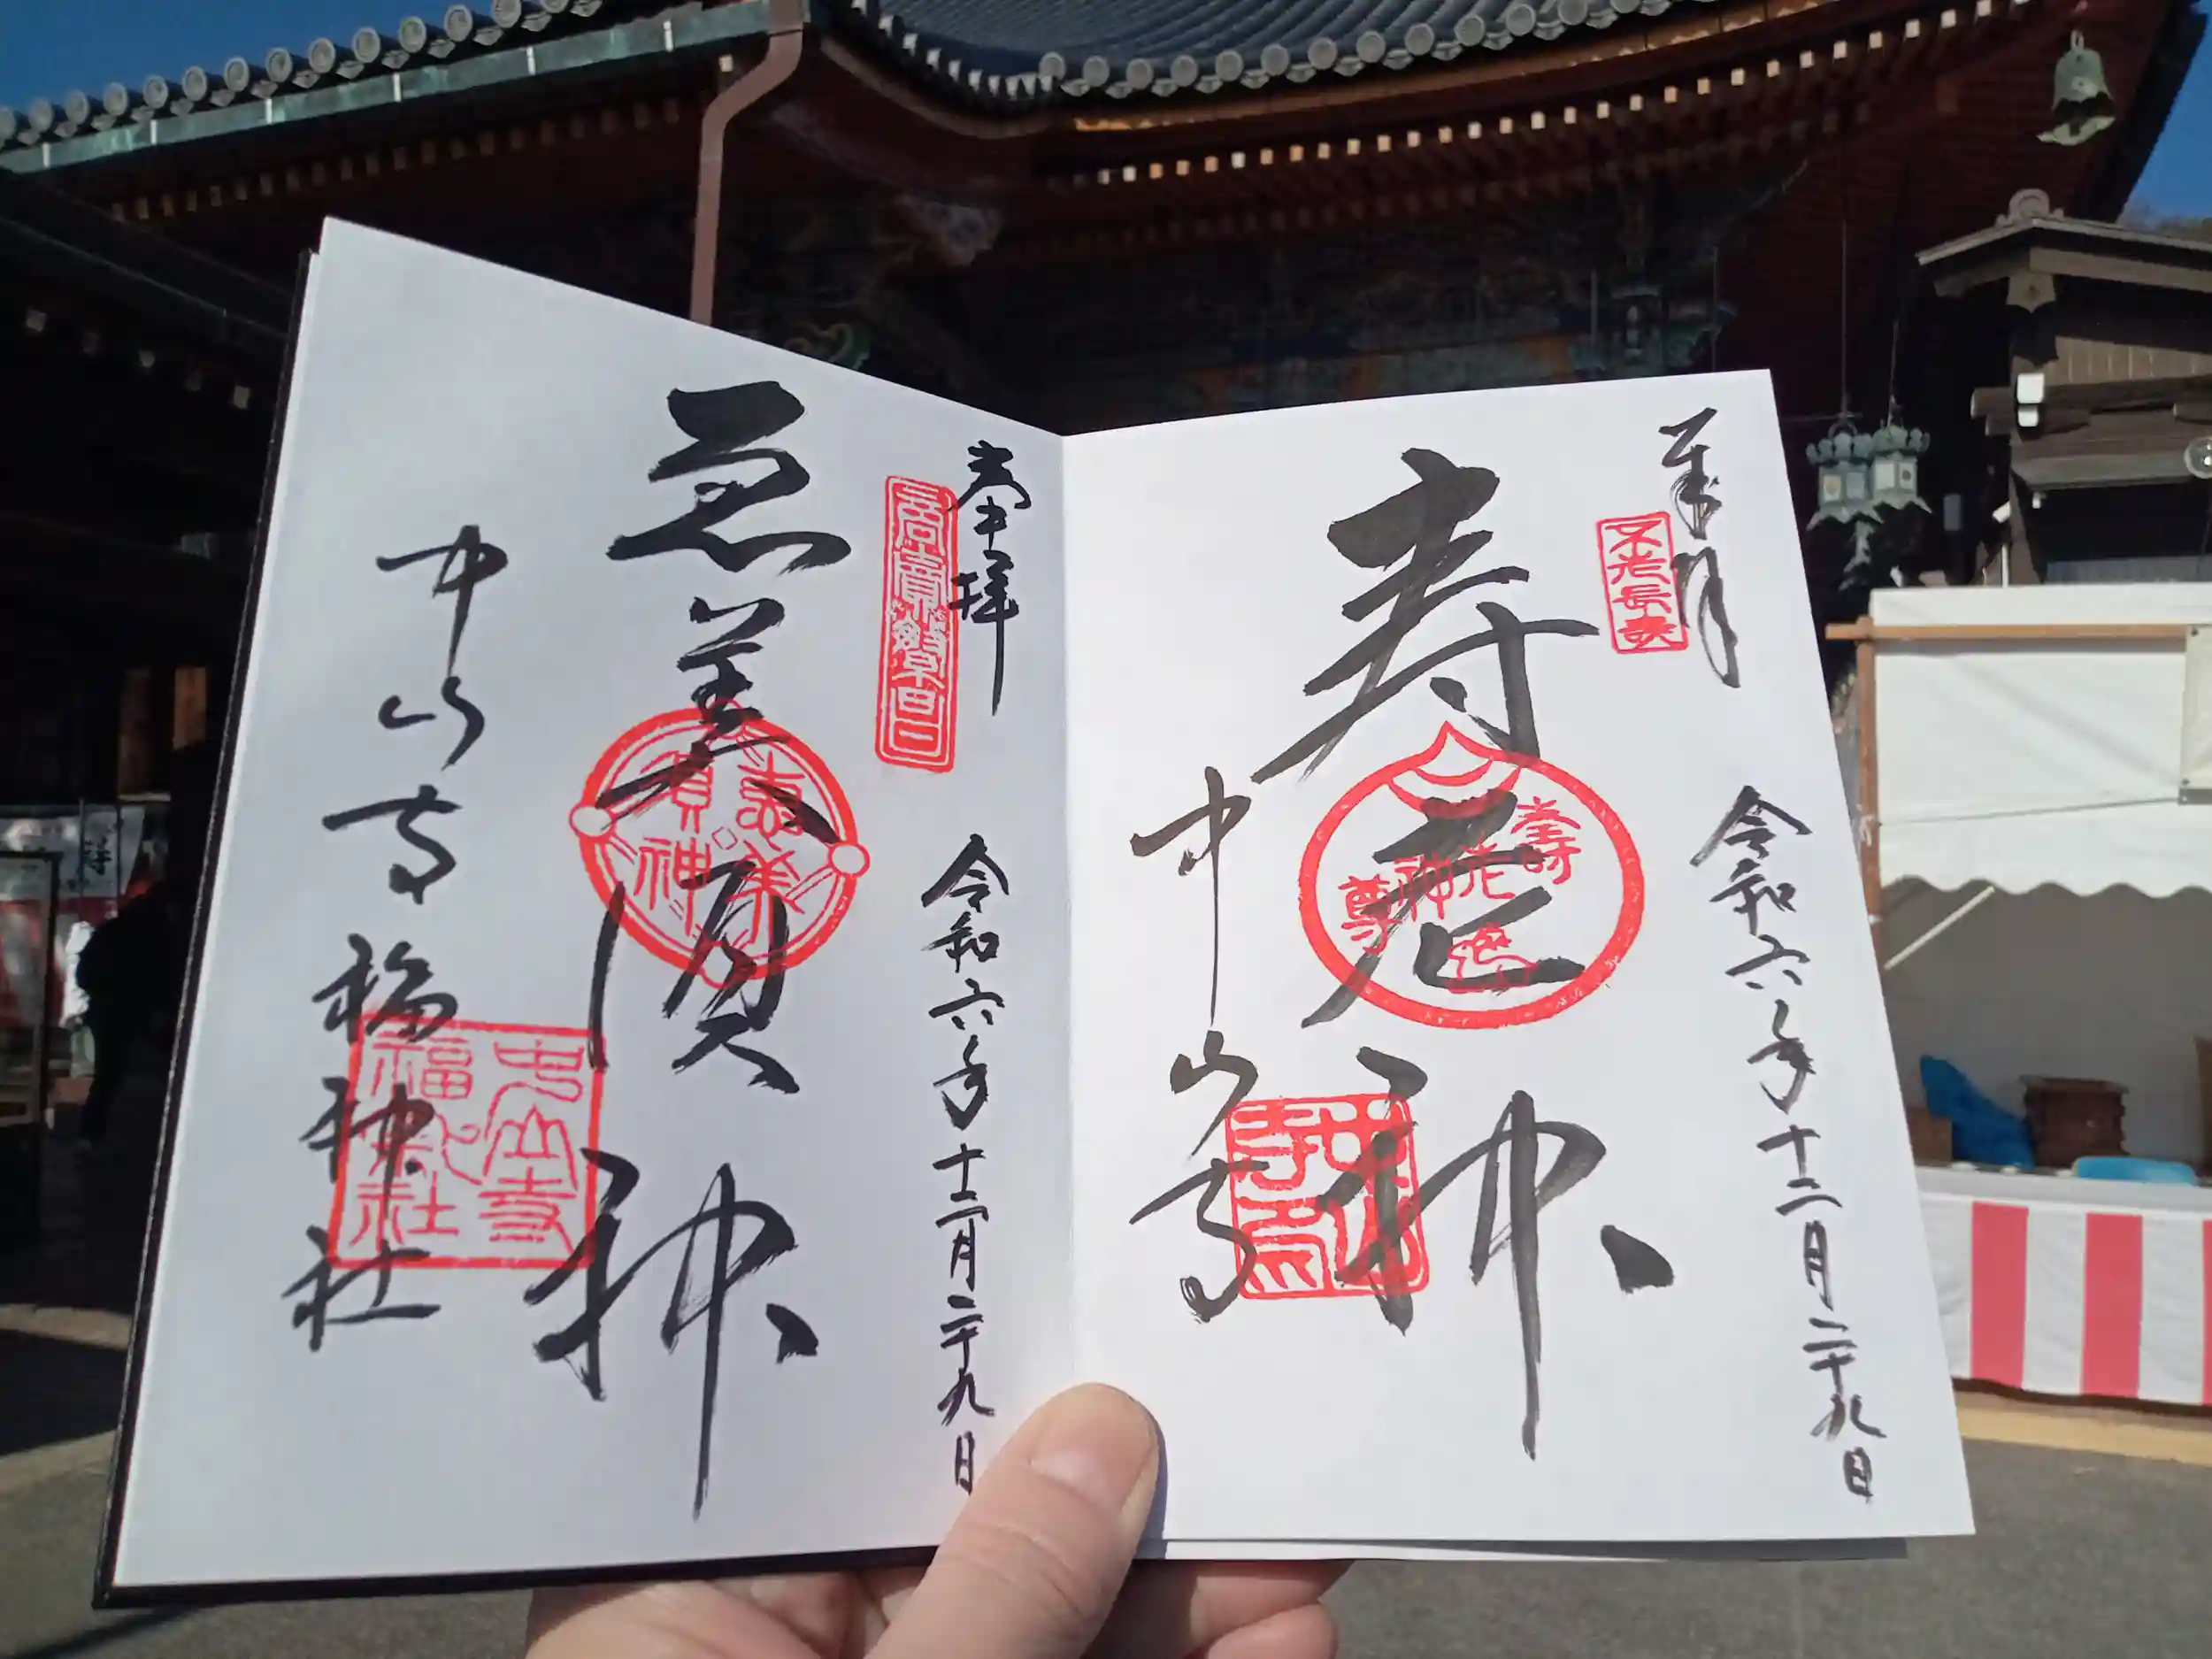 奉拝
不老長寿
令和六年十二月二十九日
寿老神
壽老神尊
中山寺
奉拝
商賣繁昌
令和六年十二月二十九日
恵美須神
恵美須神
中山寺福神社
中山寺福神社